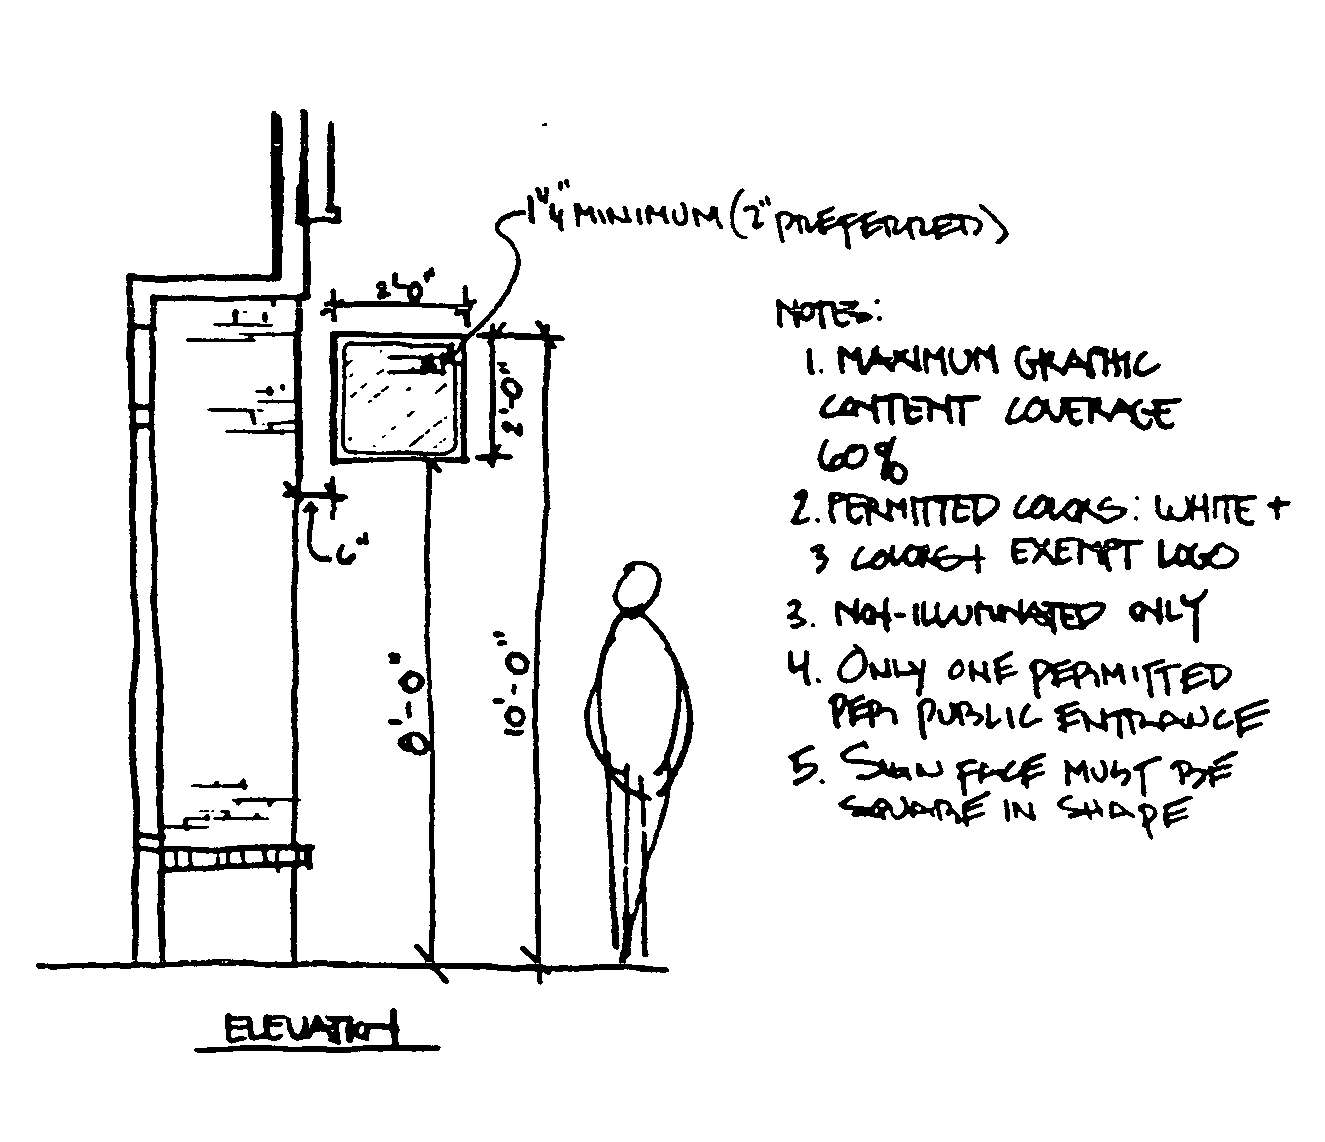 1 1/4" MINIMUM (2" PREFERRED)
2'-0"
2'-0"
6"
8'-0"
10'-0"
NOTES:
1. MAXIMUM GRAPHIC
CONTENT COVERAGE
60%
2. PERMITTED COLORS: WHITE +
3 COLORS + EXEMPT LOGO
3. NON-ILLUMINATED ONLY
4. ONLY ONE PERMITTED
PER PUBLIC ENTRANCE
5. SIGN FACE MUST BE
SQUARE IN SHAPE
ELEVATION